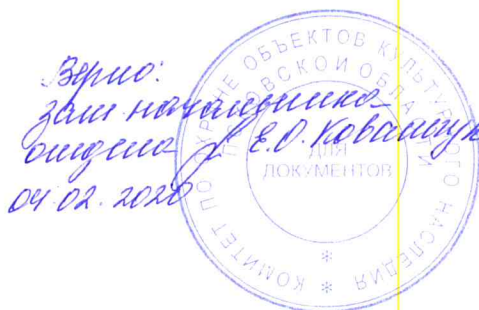 Верно:
зам начальника
отдела Е.О. Ковальчук
04.02.2020
КОМИТЕТ ПО ОХРАНЕ ОБЪЕКТОВ КУЛЬТУРНОГО НАСЛЕДИЯ
ОБЛАСТИ
ДЛЯ
ДОКУМЕНТОВ